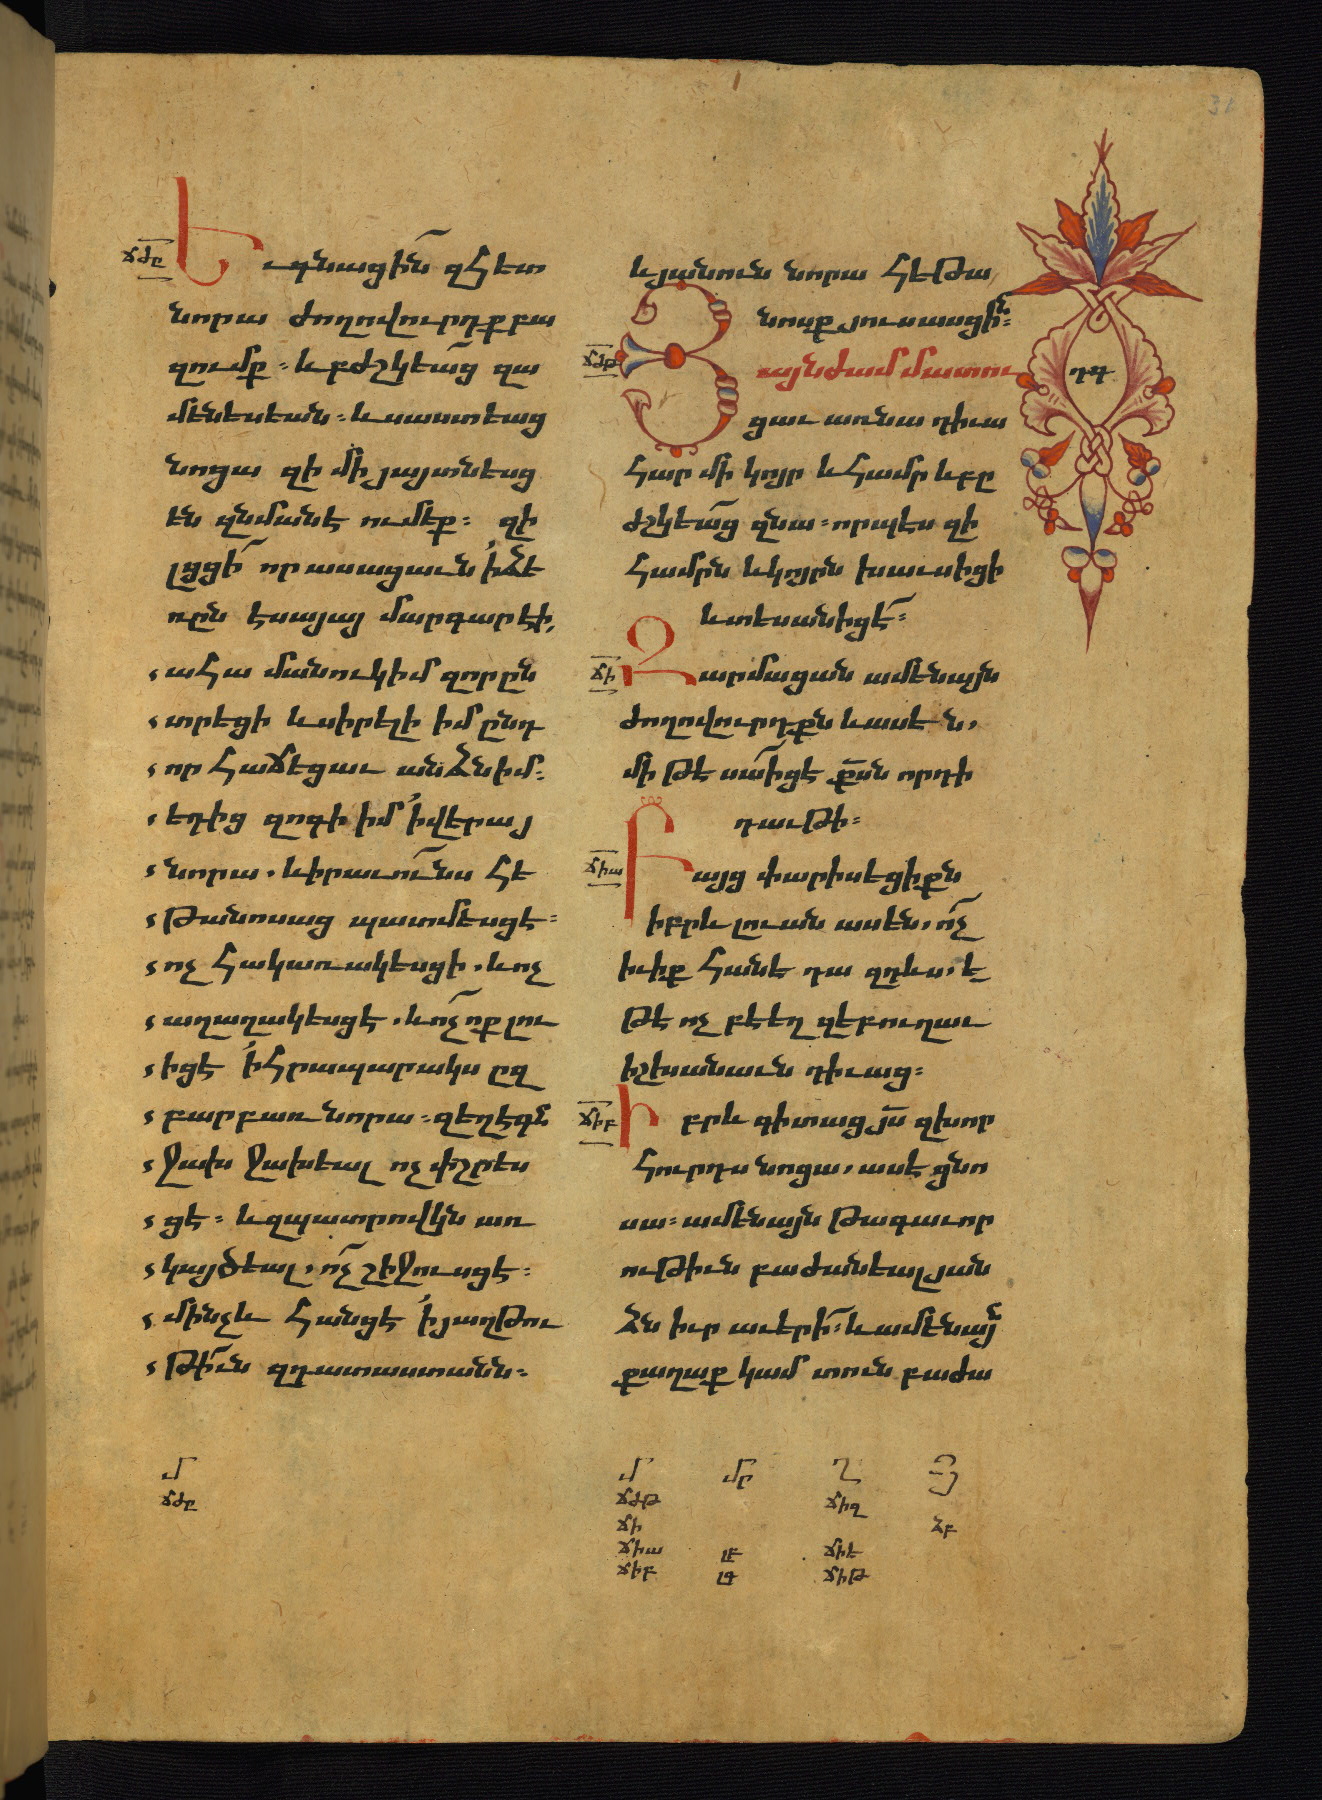 ճժը
Եւ գնացին զհետ
նորա ժողովուրդք բա
զումք։ և բժշկեաց զա
մենեսեան։ և սաստեաց
նոցա զի մի յայտնեսց
են զնմանէ ումեք։ զի
լցցի որ ասացաւն ի ձե
ռըն եսայայ մարգարէի,
ահա մանուկ իմ զոր ըն
տրեցի և սիրելի իմ ընդ
որ հաճեցաւ անձն իմ։
եդից զոգի իմ ի վերայ
նորա. և իրաւունս հե
թանոսաց պատմեսցէ։
ոչ հակառակեսցի. և ոչ
աղաղակեսցէ. և ոչ ոք լու
իցէ ի հրապարակս ըզ
բարբառ նորա։ զեղէգն
ջախջախեալ ոչ փշրես
ցէ։ և զպատրոյկն առ
կայծեալ, ոչ շիջուսցէ։
մինչև հանցէ ի յաղթու
թիւն զդատաստանն։
մ
ճժը
և յանուն նորա հեթա
նոսք յուսասցին։
ճժթ
Յայնժամ մատու
դգ
ցաւ առ նա դիւա
հար մի կոյր և համր և բը
ժշկեաց զնա։ որպէս զի
համրն և կոյրն խաւսիցի
և տեսանիցէ։
ճի
Զարմացան ամենայն
ժողովուրդքն և ասեն,
մի թէ սա իցէ քսն որդի
դաւթի։
ճիա
Բայց փարիսեցիքն
իբրև լուան ասեն, ոչ
իւիք հանէ դա զդևս, ե
թէ ոչ բեեղզեբուղաւ
իշխանաւն դիւաց։
ճիբ
Իբրև գիտաց յս զխոր
հուրդս նոցա, ասէ ցնո
սա։ ամենայն թագաւոր
ութիւն բաժանեալ յան
ձն իւր աւերի։ և ամենայն
քաղաք կամ տուն բաժա
մ մը ղ յ
ճժթ ճիզ
ճի ձբ
ճիա լբ ճիէ
ճիբ լգ ճիթ